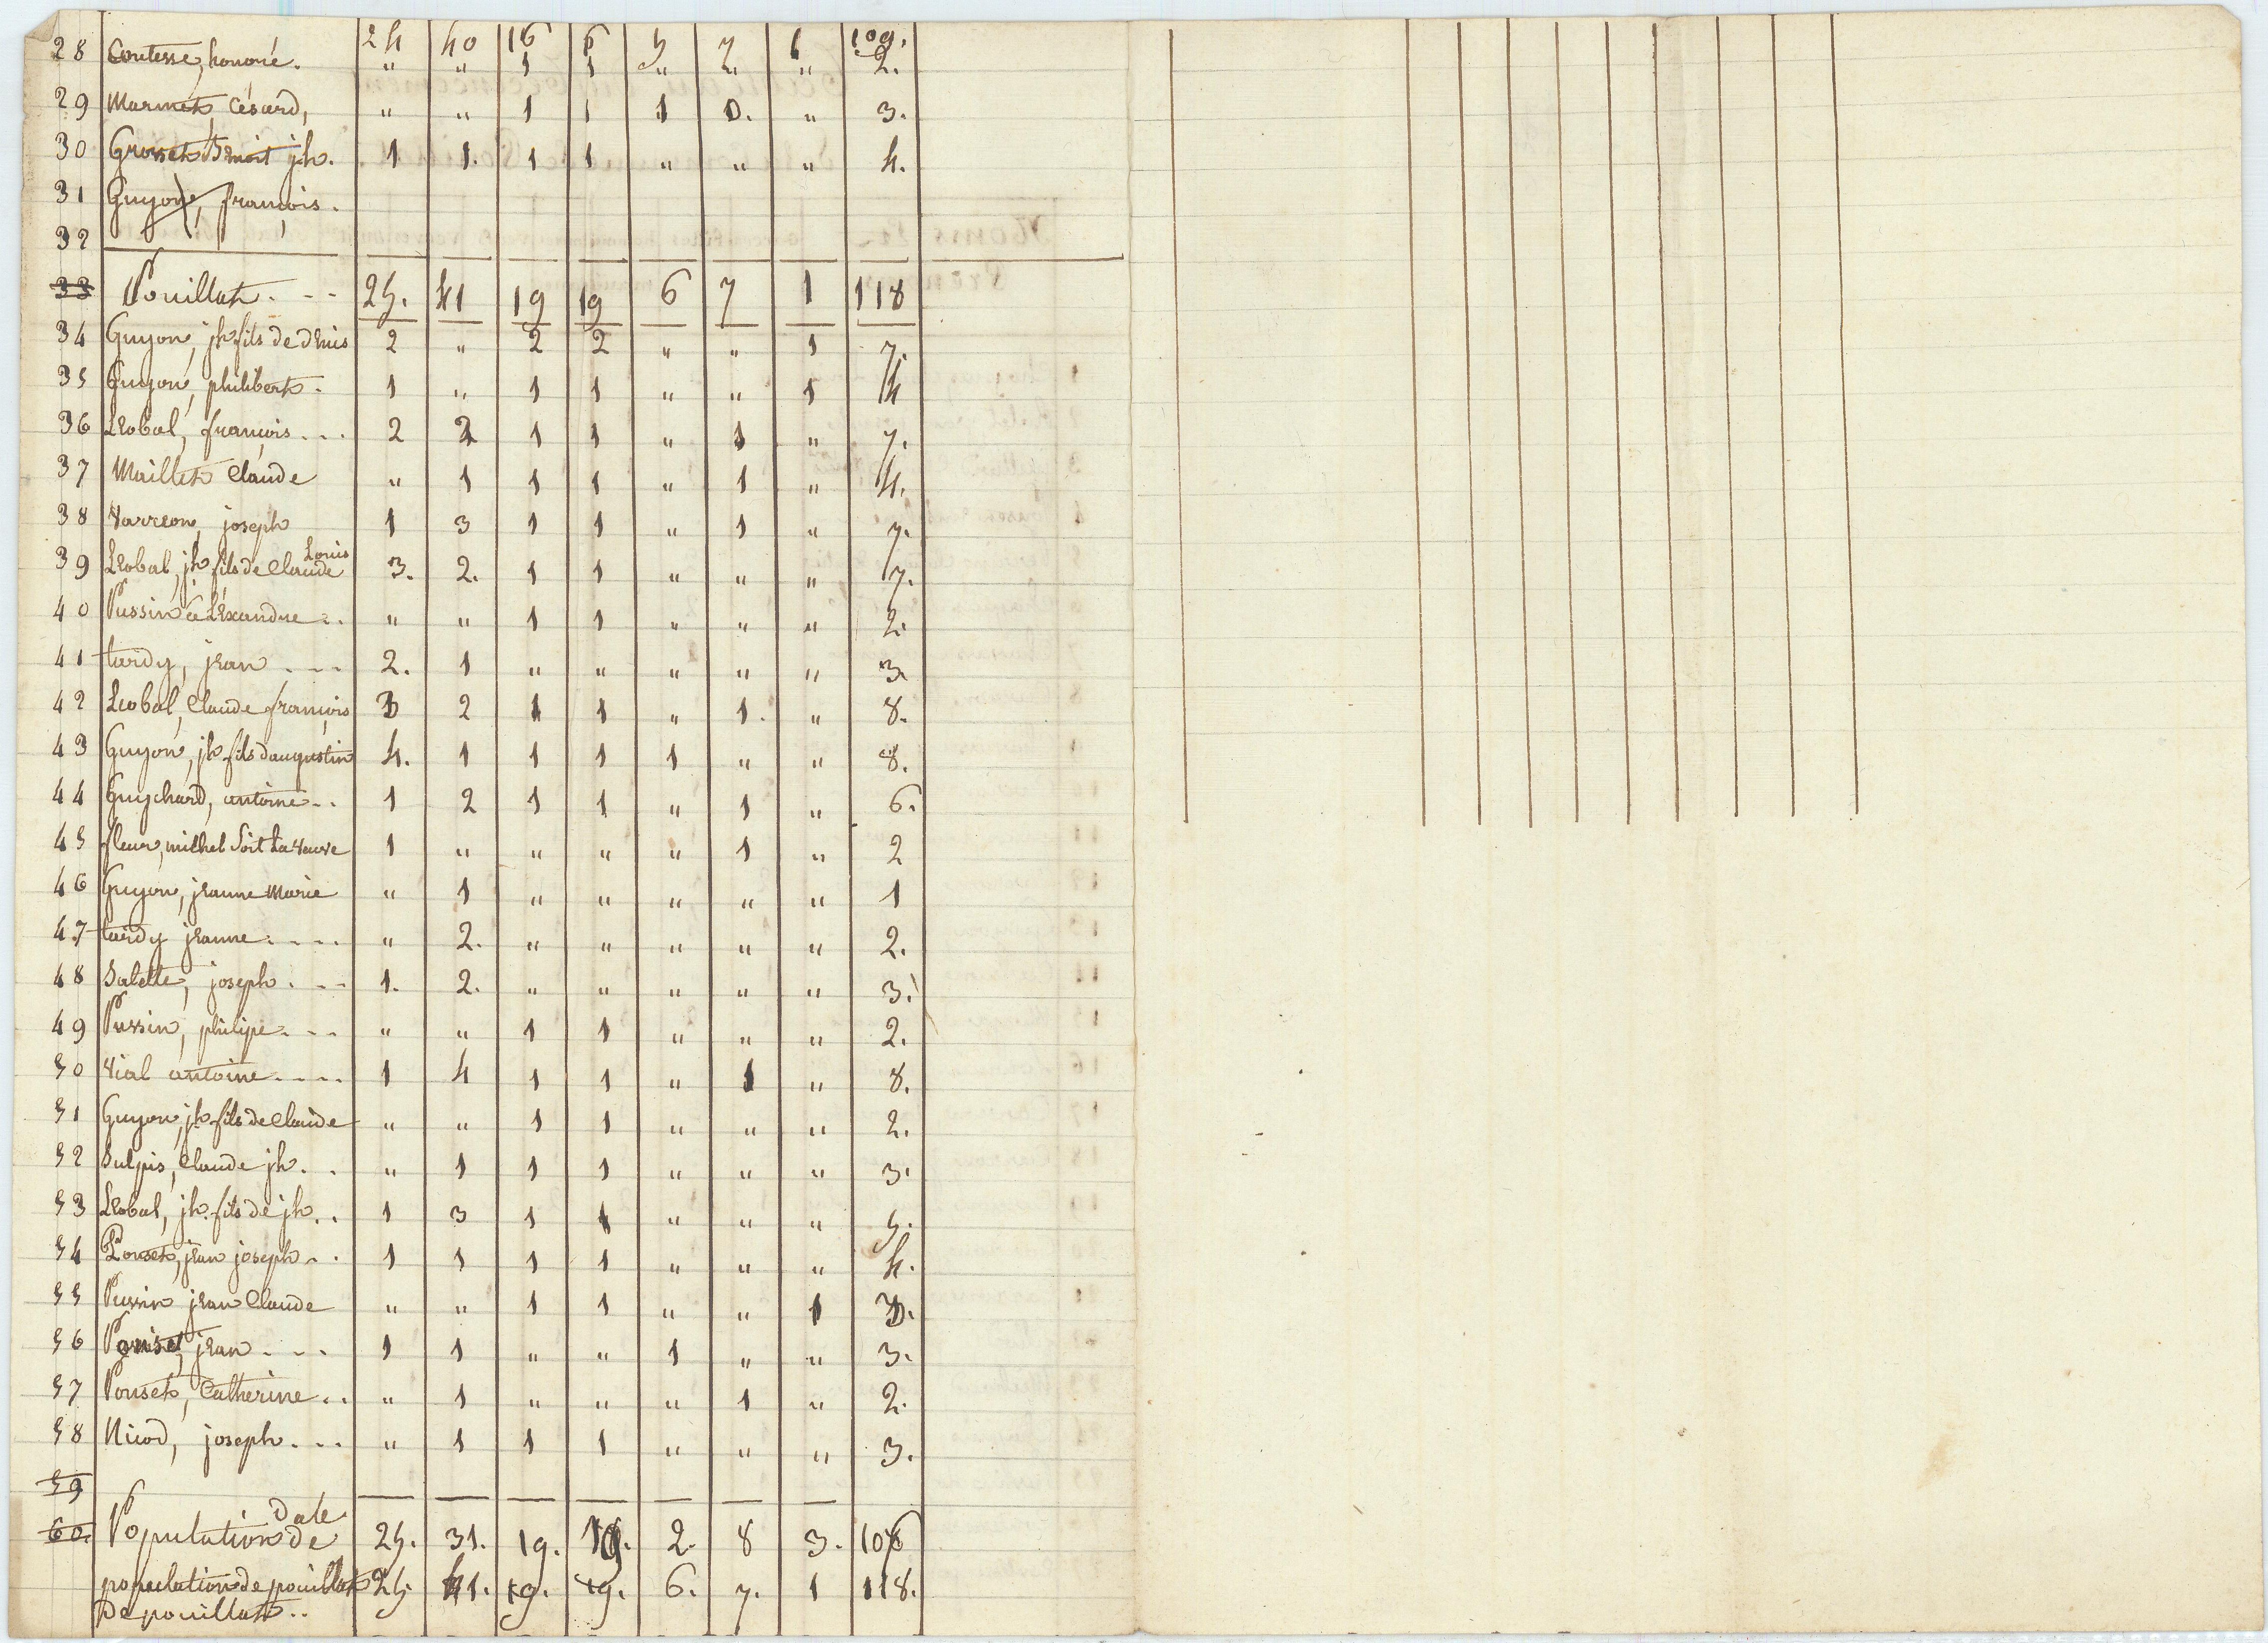 24 40 16 6 5 7 1 109.
28 Contesse, honoré. " " 1 1 " " " 2.
29 Marmet, Césard, " " 1 1 1 0. " 3.
30 Grosset Benoit jh. 1 1. 1 1 " " " 4.
31 Guyon, françois.
32
33 Pouillat. - - 25. 41 19 19 6 7 1 118
34 Guyon, jh fils de denis 2 " 2 2 " " 1 7.
35 Guyon, philibert. 1 " 1 1 " " 1 4
36 Leobal, françois... 2 2 1 1 " 1 " 7.
37 Maillet Claude " 1 1 1 " 1 " 4.
38 Varreon, joseph 1 3 1 1 " 1 " 7.
39 Leobal, jh fils de Claude Louis 3. 2. 1 1 " " " 7.
40 Pussin aléxandre.. " " 1 1 " " " 2.
41 tardy, jean .... 2. 1 " " " " " 3.
42 Leobal, Claude françois 3 2 1 1 " 1. " 8.
43 Guyon, jh fils daugustin 4. 1 1 1 1 " " 8.
44 Guychard, antoine.. 1 2 1 1 " 1 " 6.
45 fleur, michel Soit La Veuve 1 " " " " 1 " 2
46 Guyon, jeanne Marie " 1 " " " " " 1
47 tardy jeanne.... " 2. " " " " " 2.
48 Salette, joseph... 1. 2. " " " " " 3.
49 Pussin, philipe... " " 1 1 " " " 2.
50 Vial antoine.... 1 4 1 1 " 1 " 8.
51 Guyon, jh fils de Claude " " 1 1 " " " 2.
52 Sulpis, Claude jh.. " 1 1 1 " " " 3.
53 Leobal, jh. fils de jh.. 1 3 1 1 " " " 5.
54 Ponset, jean joseph.. 1 1 1 1 " " " 4.
55 Pussin jean Claude " " 1 1 " " 1 3.
56 Ponset, jean... 1 1 " " 1 " " 3.
57 Ponset, Catherine.. " 1 " " " 1 " 2.
58 Nicod, joseph... " 1 1 1 " " " 3.
59
dale
60. Population de 25. 31. 19. 19. 2. 8 3. 106
population de pouillat 25. 41. 19. 19. 6. 7. 1 118.
De pouillat..